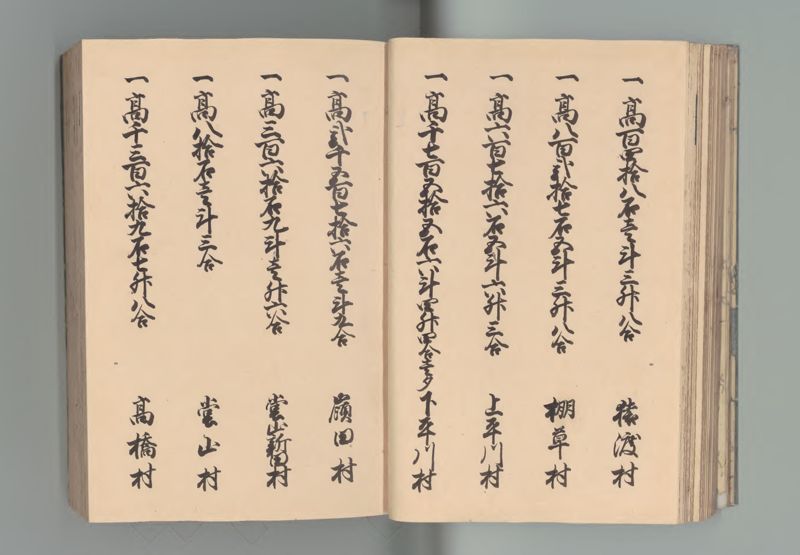 一高百四拾八石壱斗三升八合 猿渡村
一高八百弐拾七石五斗三升八合 棚草村
一高六百七拾六石五斗六升三合 上平川村
一高千七百五拾五石六斗四升四合壱夕 下平川村
一高弐千五百七拾六石壱斗九合 嶺田村
一高三百六拾石九斗壱升六合 堂山新田村
一高八拾石壱斗三合 堂山村
一高千三百六拾九石七升八合 高橋村